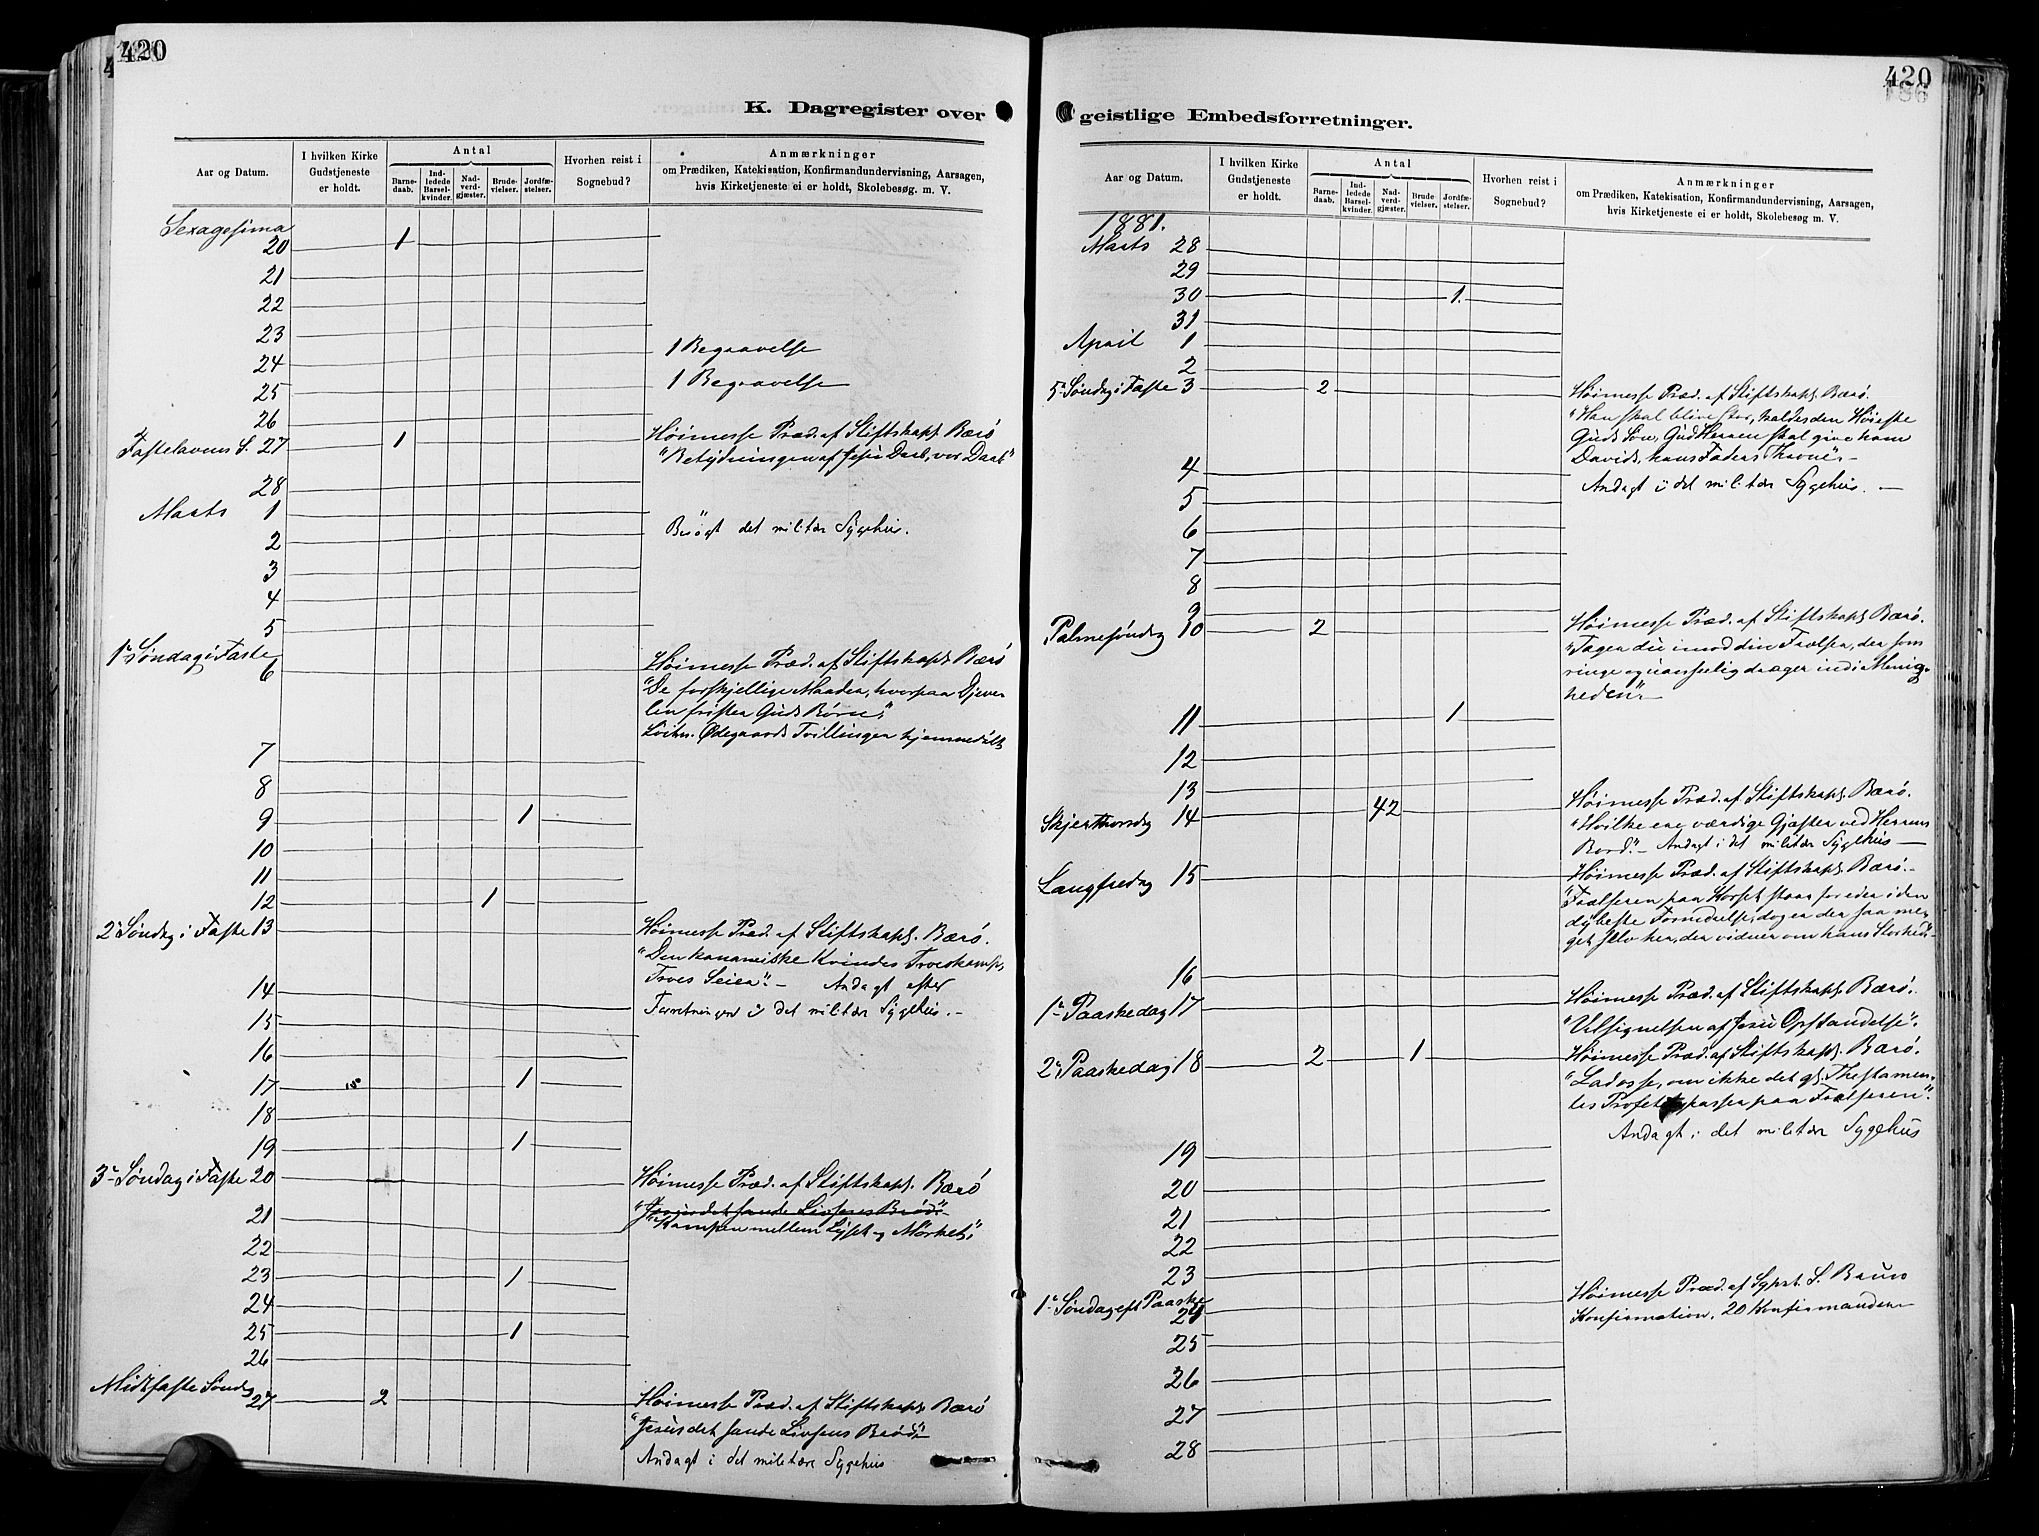 420
K. Dagregister over
Aar og Datum.
I hvilken Kirke Gudstjeneste er holdt.
Antal
Barne-daab.
Ind-ledede Barsel-kvinder.
Nad-verd-gjæster.
Brude-vielser.
Jordfæ-stelser.
Hvorhen reist i Sognebud?
Anmærkninger
om Prædiken, Katekisation, Konfirmandundervisning, Aarsagen,
hvis Kirketjeneste ei er holdt, Skolebesøg. m. V.
Sexagesima
20 1
21
22
23
24 1 Begravelse
25 1 Begravelse
26
Fastelavens S. 27 1 Høimesse Præd. af Stiftskapl. Bærø
"Betydningen af Jesu Daab, vor Daab"
28
Marts 1
Besøgt det militære Sygehus.
2
3
4
5
1ste Søndag i Faste
6 Høimesse Præd. af Stiftskapl. Bærø
"De forskjellige Maader, hvorpaa Djæve-
len frister Guds Børn".
Ødegaards Tvillinger hjemmedøbt
7
8
9 1
10
11
12 1
2. Søndag i Faste 13 Høimesse Præd. af Stiftskapl. Bærø.
"Den kananæiske Kvindes Troeskamp,
Troes Seier". - Andagt efter
14
Forretningen i det militære Sygehus. -
15
16
17 1
18
19 1
3. Søndag i Faste 20 Høimesse Præd. af Stiftskapl. Bærø
"Jesus det sande Livsens Brød".
21
"Kampen mellem Lyset og Mørket".
22
23 1
24
25 1
26
Midtfaste Søndag
27 2 Høimesse Præd. af Stiftskapl. Bærø
"Jesus det sande Livsens Brød"
Andagt i det militære Sygehus
420
186
geistlige Embedsforretninger.
Aar og Datum.
I hvilken Kirke Gudstjeneste er holdt.
Antal
Barne-daab.
Ind-ledede Barsel-kvinder.
Nad-verd-gjæster.
Brude vielser.
Jordfæ-stelser.
Hvorhen reist i Sognebud?
Anmærkninger
om Prædiken, Katekisation, Konfirmandundervisning, Aarsagen,
hvis Kirketjeneste ei er holdt, Skolebesøg m. V.
1881.
Marts 28
29
30 1.
31
April 1
2
5. Søndag i Faste 3 2 Høimesse Præd. af Stiftskapl. Bærø.
"Han skal blive stor, kaldes den Høiestes
Guds Søn, Gud Herren skal give ham
Davids, hans Faders Throne". -
4
Andagt i det militære Sygehus. -
5
6
7
8
9
Palmesøndag 10 2 Høimesse Præd. af Stiftskapl. Bærø.
"Tager du imod din Frelser, der som
ringe og uanseelig drager ind i Menig-
heden". -
11 1
12
13
Skjærthorsdag 14 42 Høimesse Præd. af Stiftskapl. Bærø.
"Hvilke ere værdige Gjæster ved Herrens
Bord". - Andagt i det militære Sygehus -
Langfredag 15 Høimesse Præd. af Stiftskapl. Bærø. -
"Frelseren paa Korset staar for eder i den
dybeste Fornedrelse, dog er der saa me-
get selv her, der vidner om hans Storhed". -
16
1ste Paaskedag 17 Høimesse Præd. af Stiftskapl. Bærø.
"Velsignelsen af Jesu Opstandelse".
2. Paaskedag 18 2 1 Høimesse Præd. af Stiftskapl. Bærø.
om ikke det gl. Thestamen-
tes passer paa Frelseren".
Andagt i det militære Sygehus
19
20
21
22
23
1. Søndag eft. Paaske
24 Høimesse Præd. af Sgprst. S. Bruun
Konfirmation. 20 Konfirmander
25
26
27
28